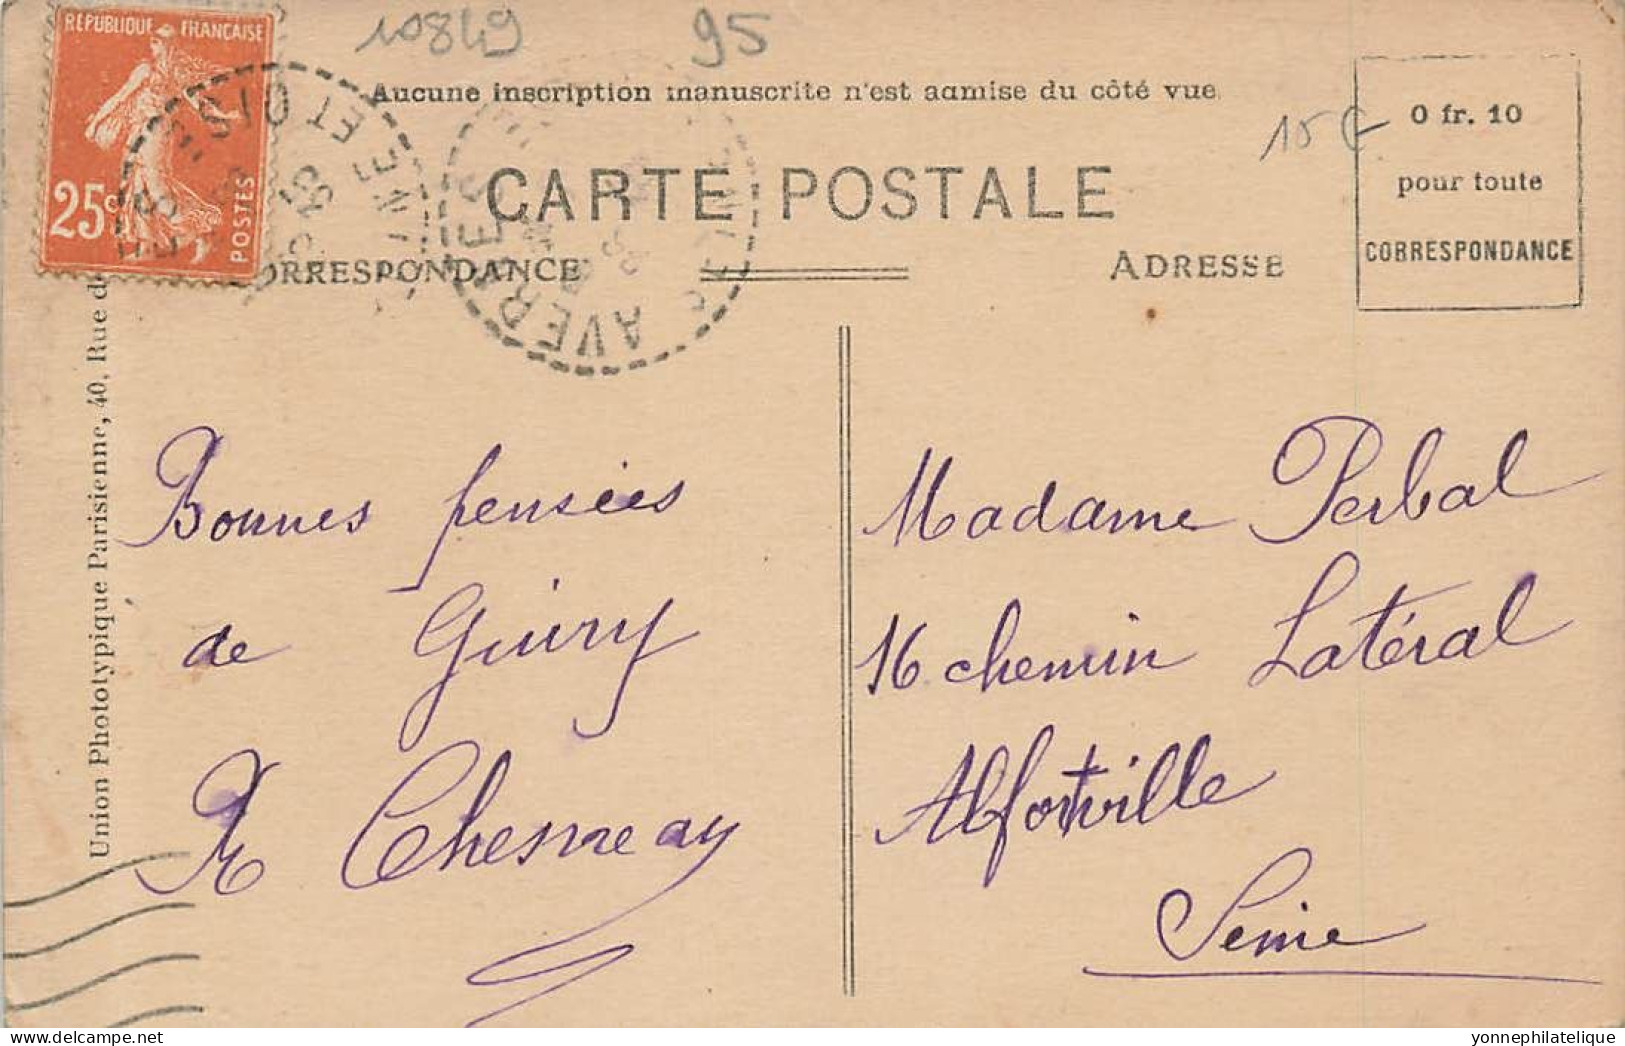 10849
95
REPUBLIQUE FRANÇAISE
25c
POSTES
ET OISE
Aucune inscription manuscrite n'est admise du côté vue
CARTE POSTALE
CORRESPONDANCE
ADRESSE
15 €
0 fr. 10
pour toute
CORRESPONDANCE
Union Phototypique Parisienne, 40, Rue d
Bonnes pensées
de Guiry
R Chesneau
Madame Perbal
16 chemin Latéral
Alfortville
Seine
yonnephilatelique.com